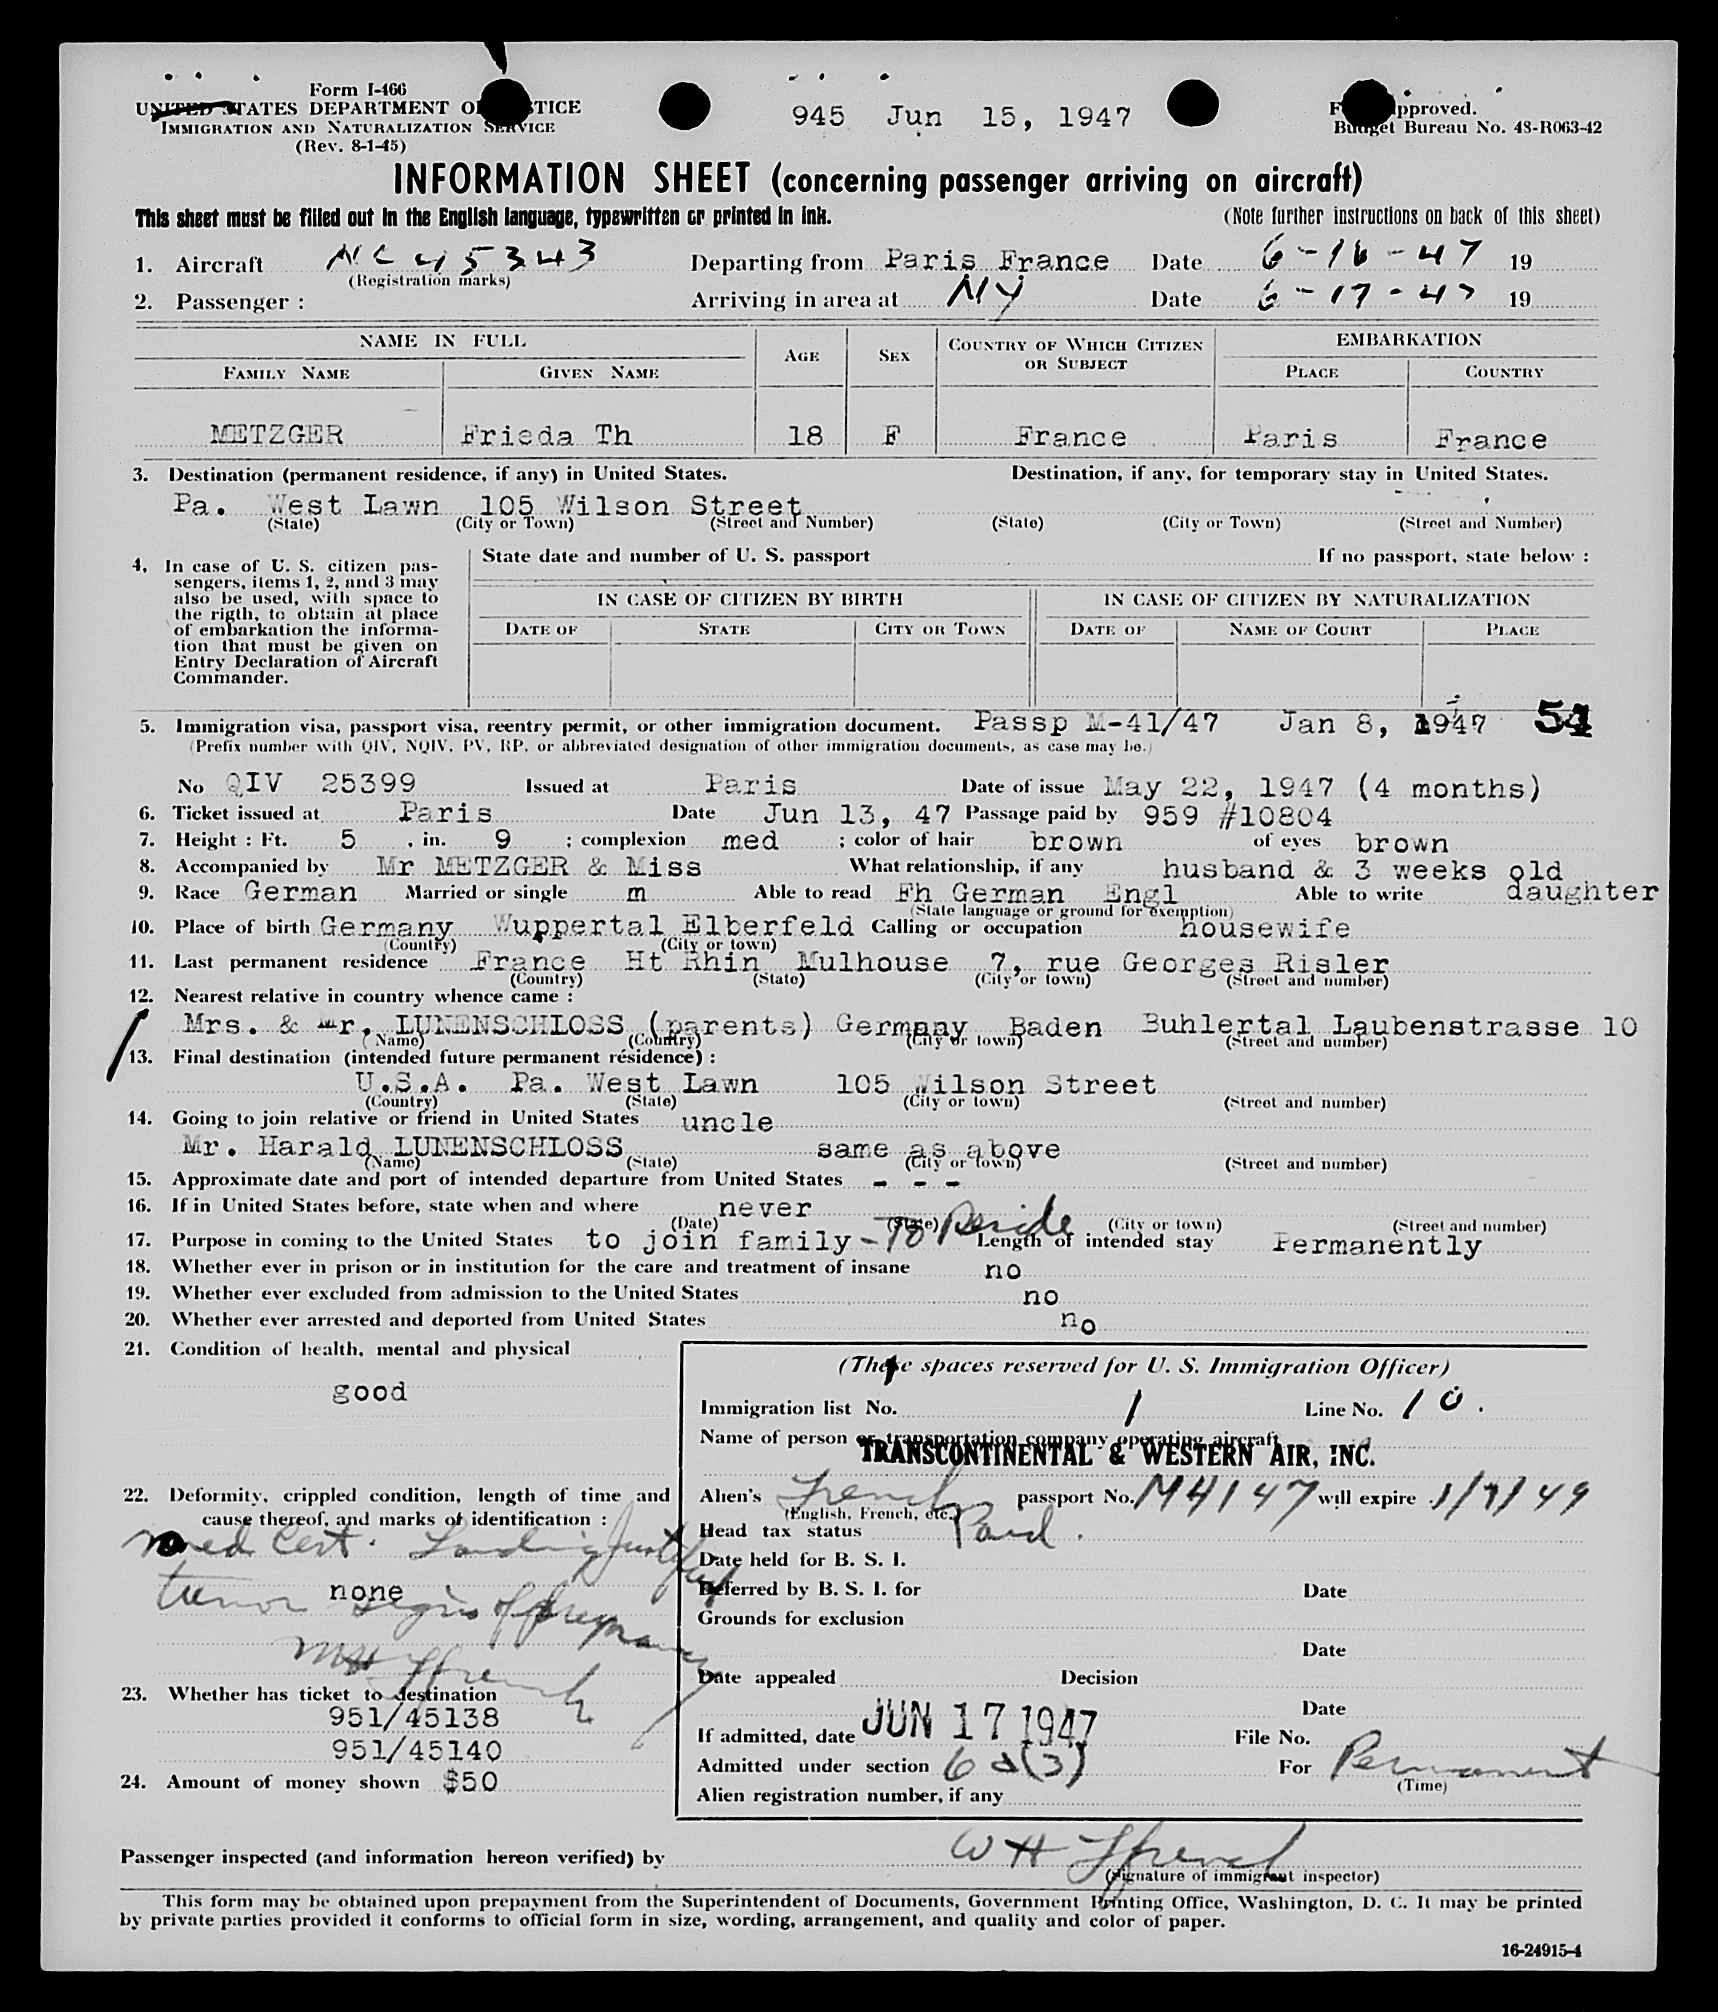 Form I-466
UNITED STATES DEPARTMENT OF JUSTICE
IMMIGRATION AND NATURALIZATION SERVICE
(Rev. 8-1-45)
945 Jun 15, 1947
Form approved.
Budget Bureau No. 43-R063-42
INFORMATION SHEET (concerning passenger arriving on aircraft)
This sheet must be filled out in the English language, typewritten or printed in ink. (Note further instructions on back of this sheet)
1. Aircraft NC 45343 Departing from Paris France Date 6-16-47 19
(Registration marks)
2. Passenger : Arriving in area at NY Date 6-17-47 19
NAME IN FULL AGE SEX COUNTRY OF WHICH CITIZEN OR SUBJECT EMBARKATION
FAMILY NAME GIVEN NAME PLACE COUNTRY
METZGER Frieda Th 18 F France Paris France
3. Destination (permanent residence, if any) in United States. Destination, if any, for temporary stay in United States.
Pa. West Lawn 105 Wilson Street
(State) (City or Town) (Street and Number) (State) (City or Town) (Street and Number)
4, In case of U. S. citizen pas-
sengers, items 1, 2, and 3 may
also be used, with space to
the rigth, to obtain at place
of embarkation the informa-
tion that must be given on
Entry Declaration of Aircraft
Commander.
State date and number of U. S. passport If no passport, state below :
IN CASE OF CITIZEN BY BIRTH IN CASE OF CITIZEN BY NATURALIZATION
DATE OF STATE CITY OR TOWN DATE OF NAME OF COURT PLACE
5. Immigration visa, passport visa, reentry permit, or other immigration document. Passp M-41/47 Jan 8, 1947 54
(Prefix number with QIV, NQIV, PV, RP, or abbreviated designation of other immigration documents, as case may be.)
No QIV 25399 Issued at Paris Date of issue May 22, 1947 (4 months)
6. Ticket issued at Paris Date Jun 13, 47 Passage paid by 959 #10804
7. Height : Ft. 5 , in. 9 ; complexion med ; color of hair brown of eyes brown
8. Accompanied by Mr METZGER & Miss What relationship, if any husband & 3 weeks old
9. Race German Married or single m Able to read Fh German Engl Able to write daughter
(State language or ground for exemption)
10. Place of birth Germany Wuppertal Elberfeld Calling or occupation housewife
(Country) (City or town)
11. Last permanent residence France Ht Rhin Mulhouse 7, rue Georges Risler
(Country) (State) (City or town) (Street and number)
12. Nearest relative in country whence came :
Mrs. & Mr. LUNENSCHLOSS (parents) Germany Baden Buhlertal Laubenstrasse 10
(Name) (Country) (City or town) (Street and number)
13. Final destination (intended future permanent résidence) :
U.S.A. Pa. West Lawn 105 Wilson Street
(Country) (State) (City or town) (Street and number)
14. Going to join relative or friend in United States uncle
Mr. Harald LUNENSCHLOSS same as above
(Name) (State) (City or town) (Street and number)
15. Approximate date and port of intended departure from United States - - -
16. If in United States before, state when and where never
(Date) (State) (City or town) (Street and number)
17. Purpose in coming to the United States to join family - To Reside Length of intended stay Permanently
18. Whether ever in prison or in institution for the care and treatment of insane no
19. Whether ever excluded from admission to the United States no
20. Whether ever arrested and deported from United States no
21. Condition of health, mental and physical
good
(These spaces reserved for U. S. Immigration Officer)
Immigration list No. 1 Line No. 10.
Name of person or transportation company operating aircraft
TRANSCONTINENTAL & WESTERN AIR, INC.
Alien's French passport No. M41 47 will expire 1/7/49
(English, French, etc.)
Head tax status Paid.
Date held for B. S. I.
Deferred by B. S. I. for Date
Grounds for exclusion
Date
Date appealed Decision
Date
If admitted, date JUN 17 1947 File No.
Admitted under section 6a(3) For Permanent
(Time)
Alien registration number, if any
22. Deformity, crippled condition, length of time and
cause thereof, and marks of identification :
med Cert. Landing
none signs of pregnancy
23. Whether has ticket to destination
951/45138
951/45140
24. Amount of money shown $50
Passenger inspected (and information hereon verified) by WH Ffrench
(Signature of immigrant inspector)
This form may be obtained upon prepayment from the Superintendent of Documents, Government Printing Office, Washington, D. C. It may be printed
by private parties provided it conforms to official form in size, wording, arrangement, and quality and color of paper.
16-24915-4